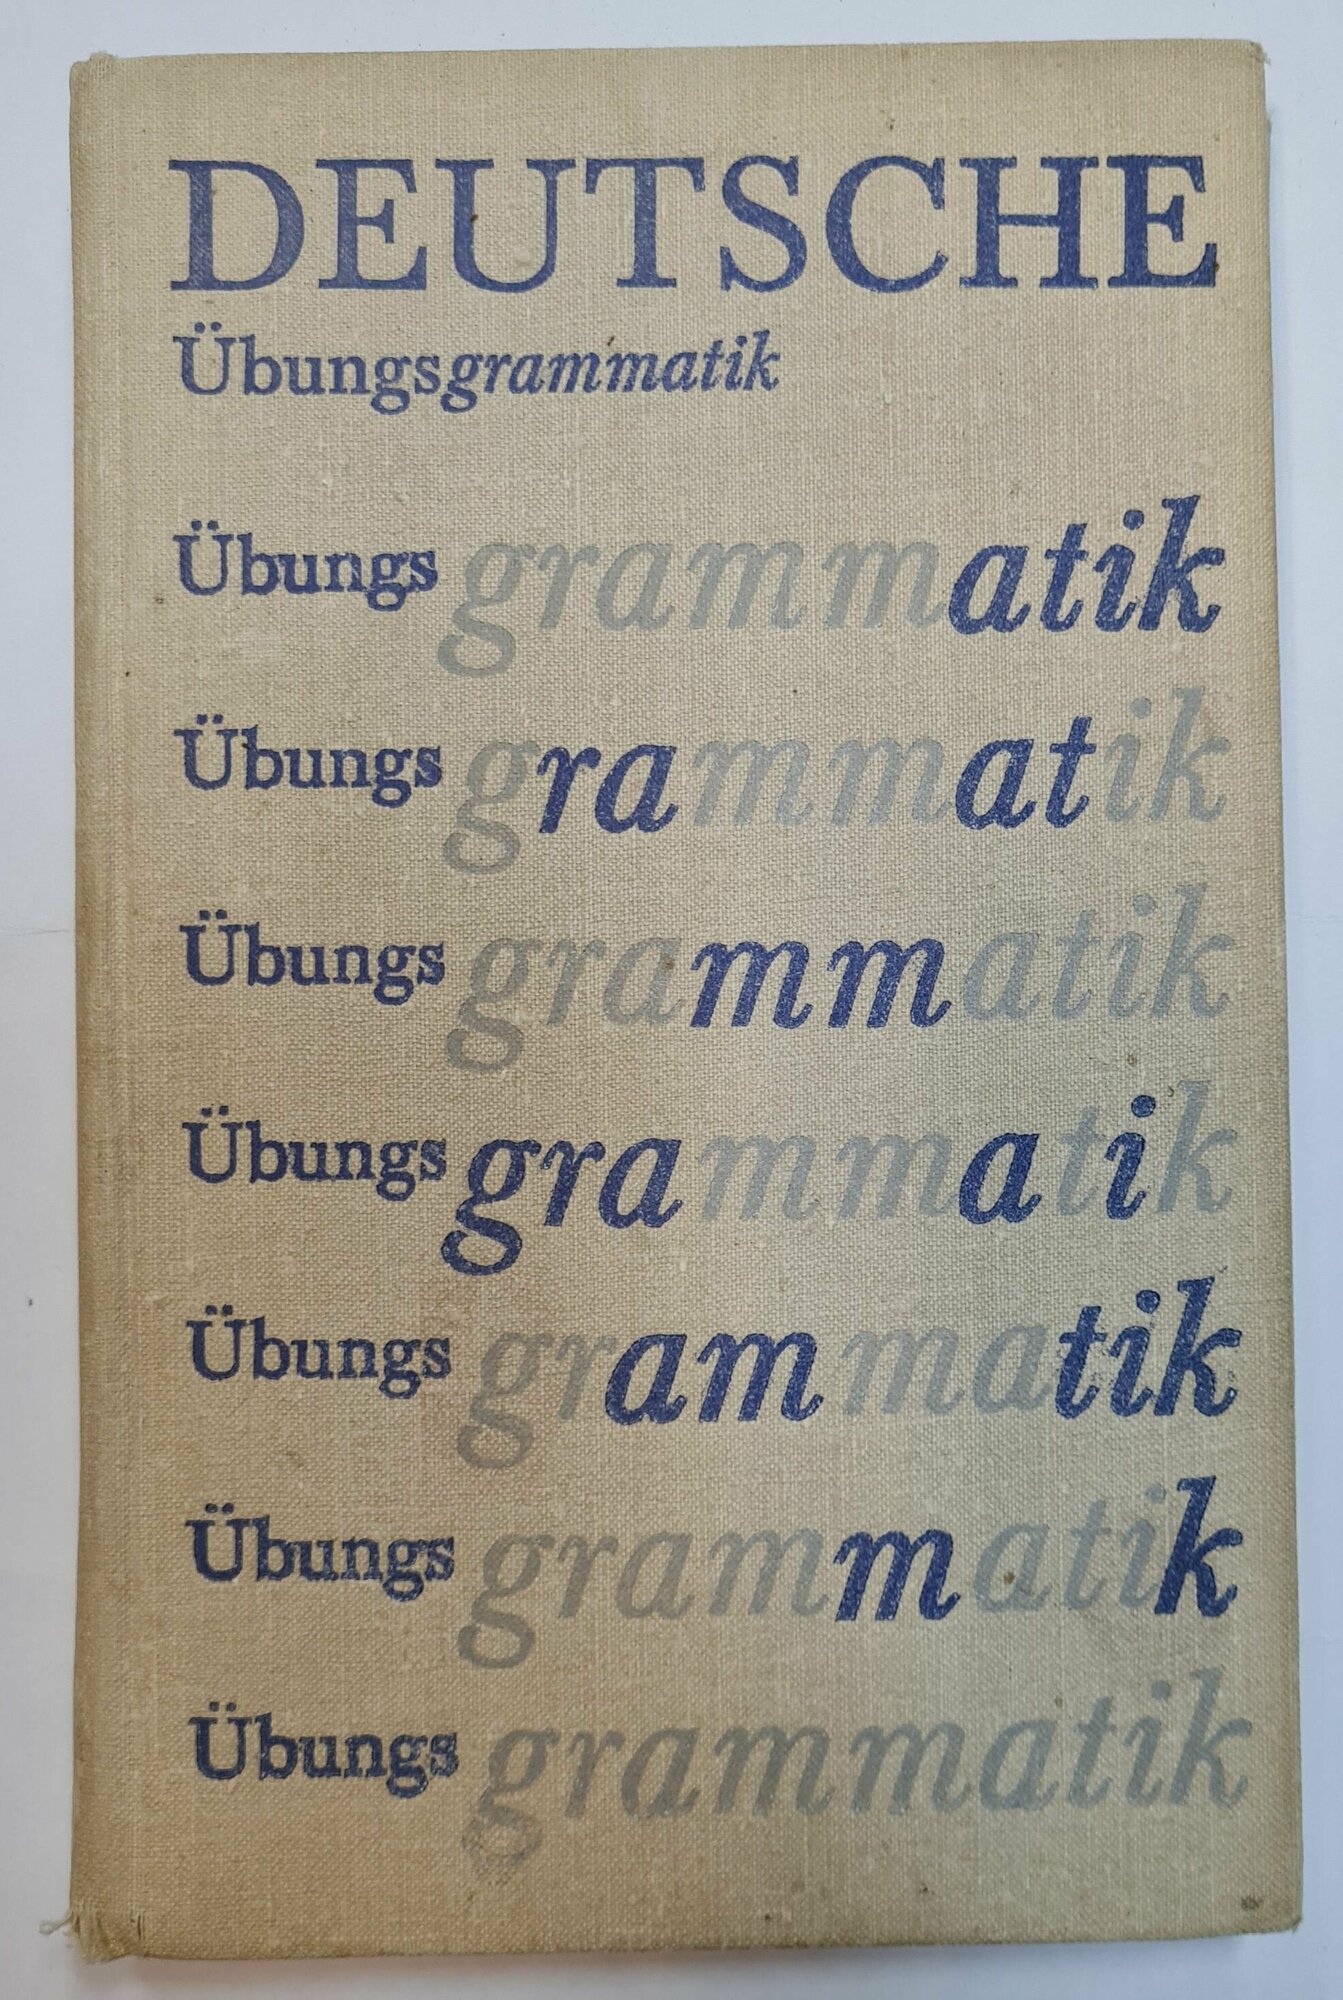 DEUTSCHE
Übungsgrammatik
Übungs grammatik
Übungs grammatik
Übungs grammatik
Übungs grammatik
Übungs grammatik
Übungs grammatik
Übungs grammatik